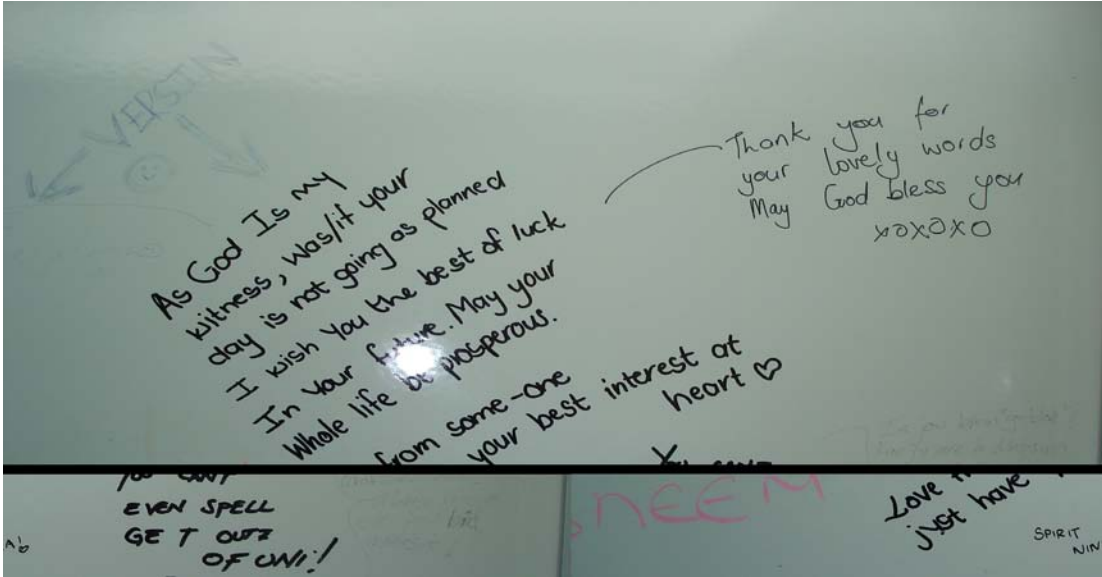 VERSIN
As God Is my
witness, was/if your
day is not going as planned
I wish you the best of luck
In Your future. May your
Whole life be prosperous.
from some-one
your best interest at
heart ♡
Thank you for
your lovely words
May God bless you
xoxoxo
EVEN SPELL
GET OUTZ
OF UNI!
NEEM
Love
just have
SPIRIT
NIN